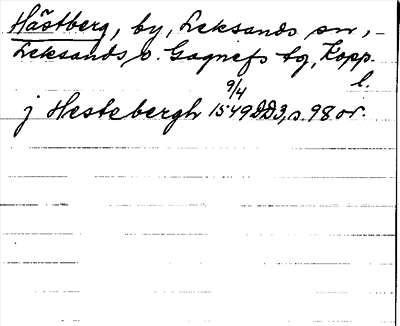 Hästberg, by, Leksands sn, -
Leksands o. Gagnefs tg, Kopp.
l.
9/4
j Hestebergh 1549 DD3, s. 98 or.